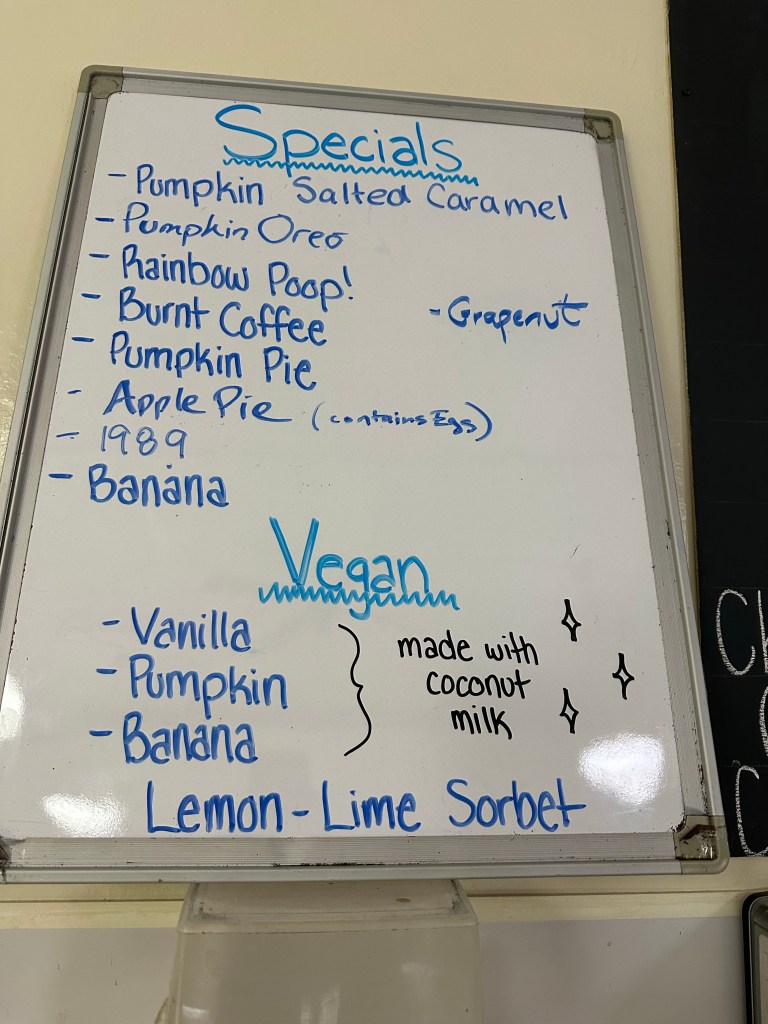 Specials
- Pumpkin Salted Caramel
- Pumpkin Oreo
- Rainbow Poop!
- Burnt Coffee
- Grapenut
- Pumpkin Pie
- Apple Pie (contains Eggs)
- 1989
- Banana
Vegan
- Vanilla
- Pumpkin
- Banana
made with
coconut
milk
Lemon-Lime Sorbet